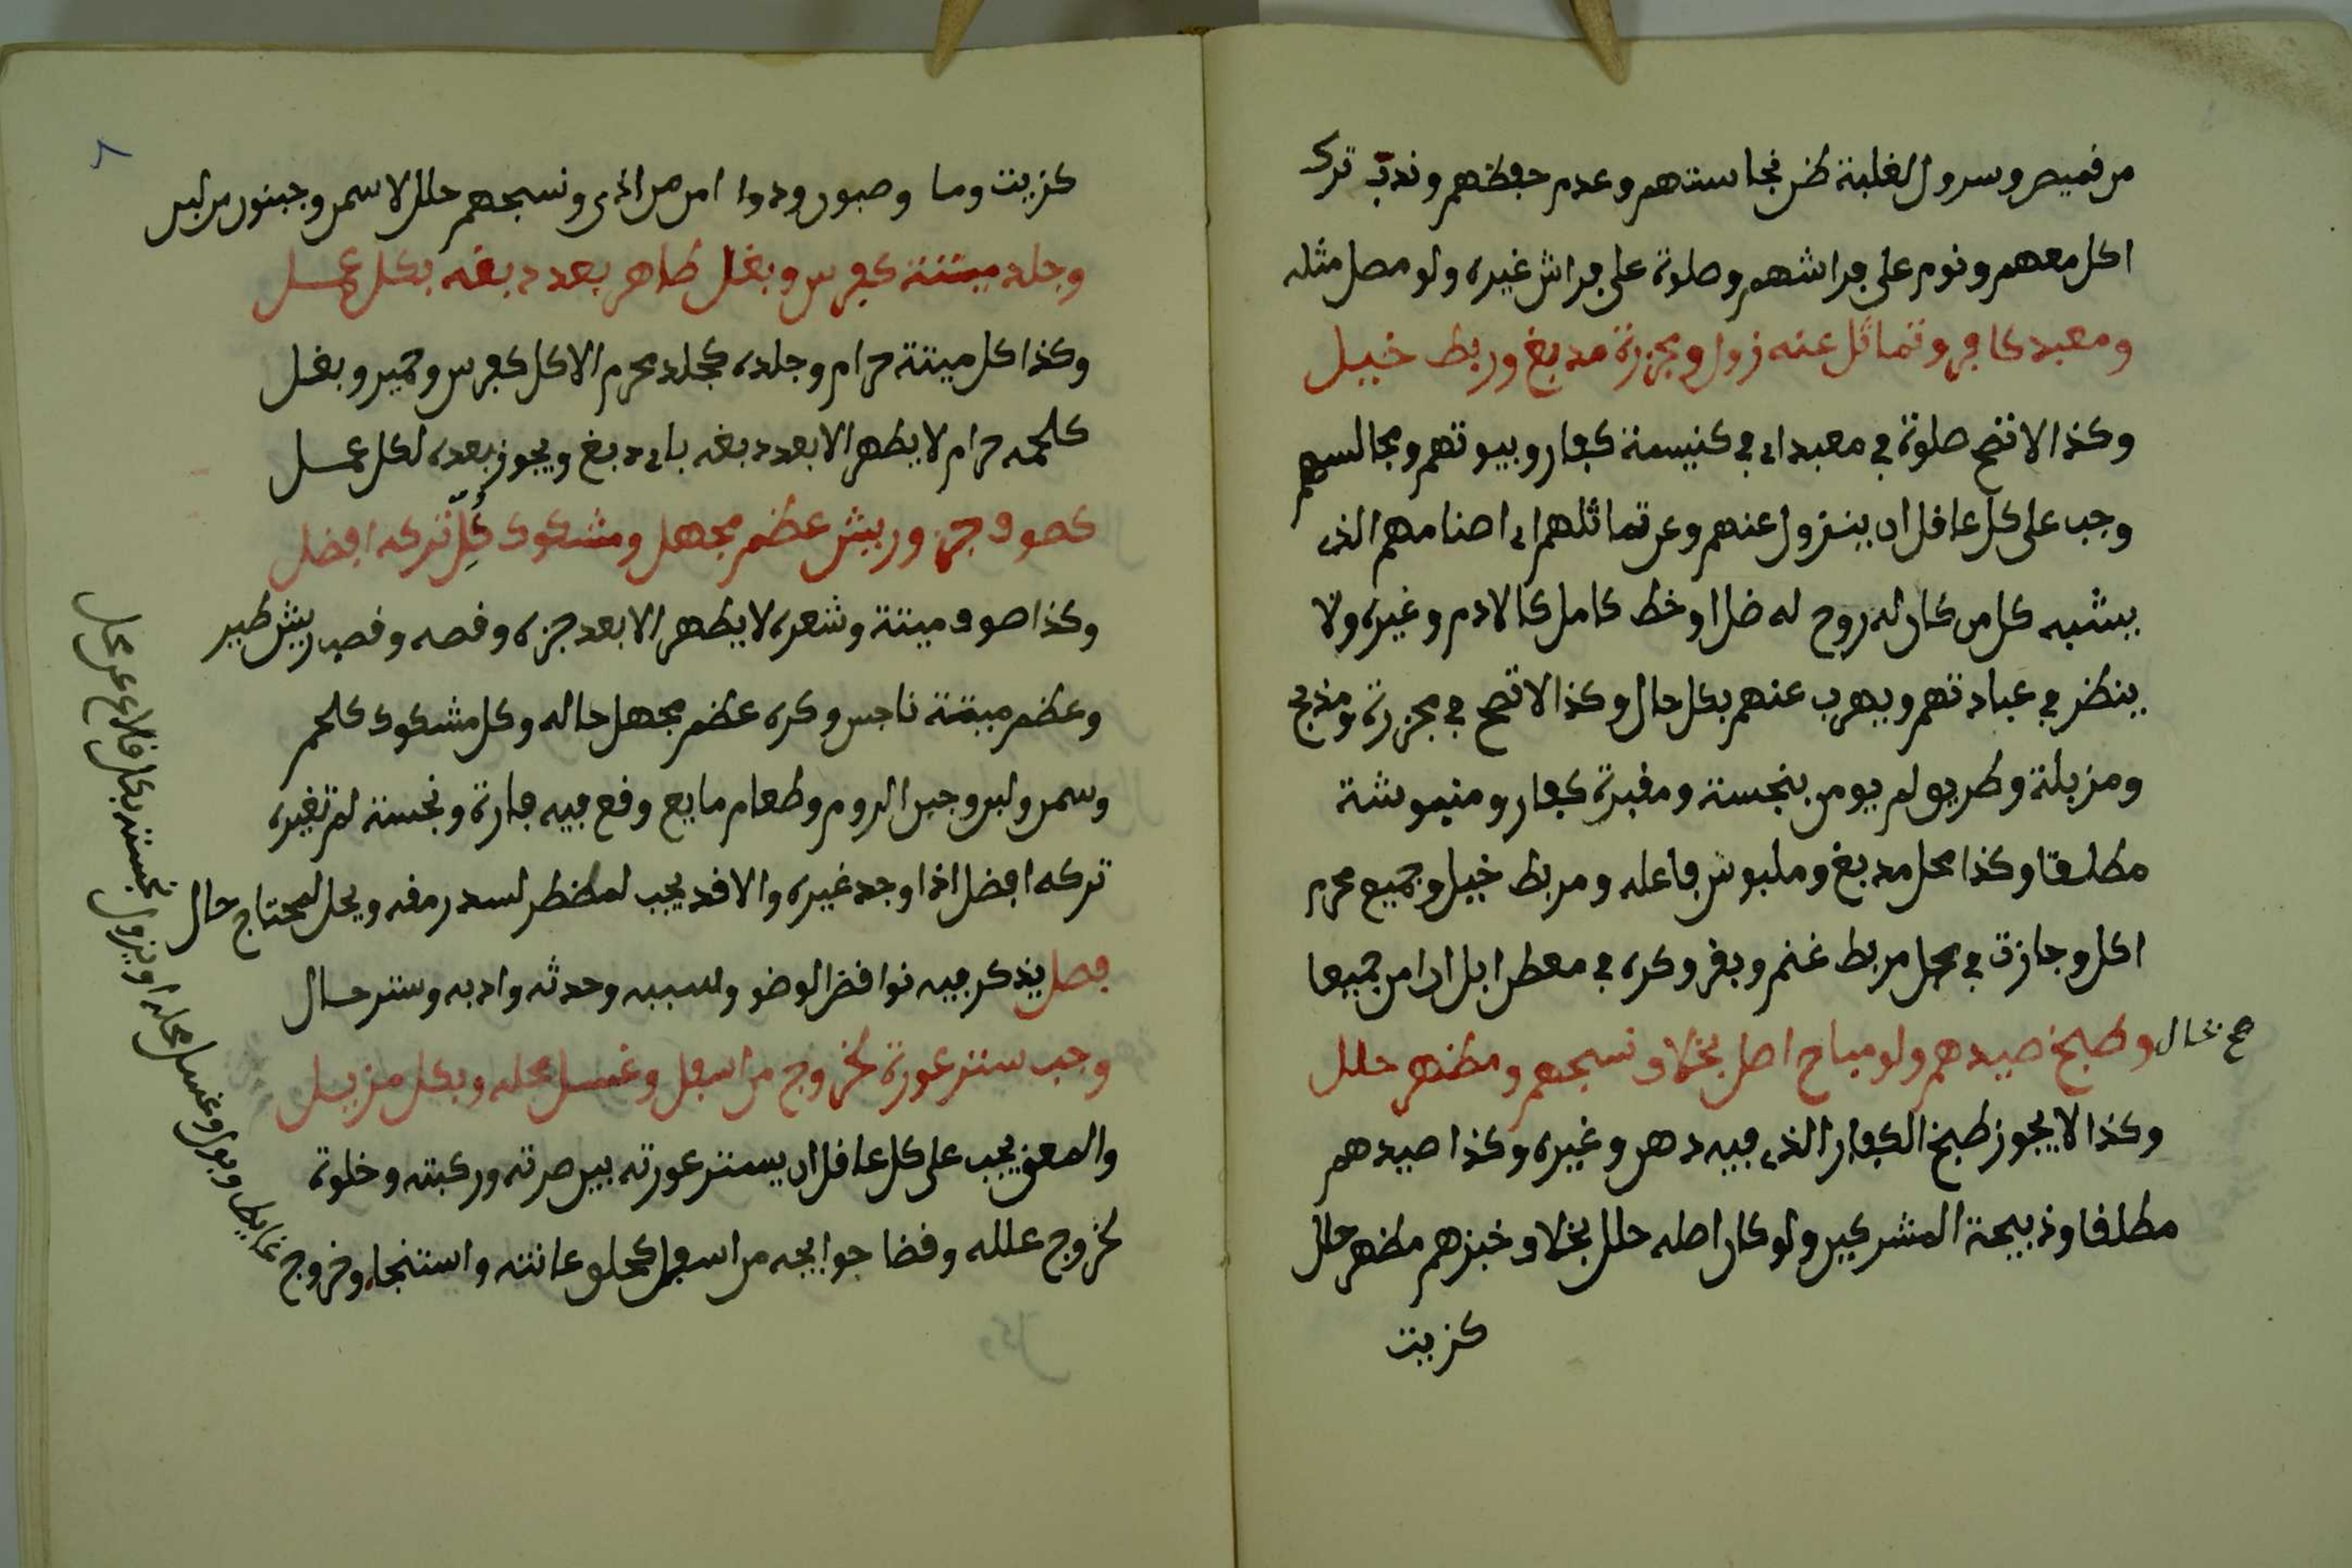 من قميص وسرول لغلبة ظن نجاستهم وعدم حفظهم وندب ترك
اكل معهم ونوم على فراشهم وصلوة على فراش غيره ولو مصل مثله
ومعبد كافر وتماثل عنه زول ومجزرة مدبغ وربط خيل
وكذا لا تصح صلوة في معبد اي في كنيسة كفار وبيوتهم ومجالسهم
وجب على كل عاقل ان ينزول عنهم وعن تماثلهم اي اصنامهم الذي
يشبه كل من كان له روح له ضل او خط كامل كالادم وغيره ولا
ينظر في عبادتهم ويهرب عنهم بكل حال وكذا لا تصح في مجزرة ومذبح
ومزبلة وطريق لم يومن بنجسة ومقبرة كفار ومنبوشة
مطلقا وكذا محل مدبغ وملبوس فاعله ومربط خيل وجميع محرم
اكل وجازت في محل مربط غنم وبقر وكره في معطن ابل ان امن جميعا
وطبخ صيدهم ولو مباح اصل بخلاف نسجهم ومظهر حلل
وكذا لا يجوز طبخ الكفار الذي فيه دهن وغيره وكذا صيدهم
مطلقا وذبيحة المشركين ولو كان اصله حلل بخلاف خبزهم مظهر حلل
كزيت
كزيت وما وصبون ودوا امن من اذى ونسجهم حلل لا سمن وجبنون من لبن
وجلد ميتتة كفرس وبغل طاهر بعد دبغه بكل عمسل
وكذا كل ميتتة حرام وجلده كجلد محرم الاكل كفرس وحمير وبغل
كلحمه حرام لا يطهر الا بعد دبغه باي دبغ ويجوز بعده لكل عمسل
كصوف جز وريش عظم مجهل ومشكوك كل تركه افضل
وكذا صوف ميتتة وشعره لا يطهر الا بعد جزه وقصه وقصب ريش طير
وعظم ميتتة ناجس وكره عظم مجهل حاله وكل مشكوك كلحم
وسمن ولبن وجبن الروم وطعام مايع وقع فيه فارة ونجسة لم تغيره
تركه افضل اذا وجد غيره والا قد يجب لمظطر لسد رمقه ويحل لمحتاج حال
فصل يذكر فيه نواقض الوضو ولسببه وحدثه وادبه وستر حسال
وجب ستر عورة لخروج من اسفل وغسل محله وبكل مزيل
والمعنى يجب على كل عاقل ان يستر عورته بين صرته وركبته وخلوة
لخروج علله وقضا حوايجه من اسفل كحلق عانته واستنجاء وخروج
غايط وبول وغسل محله او يزول نجسته بكل قلاع عن محل